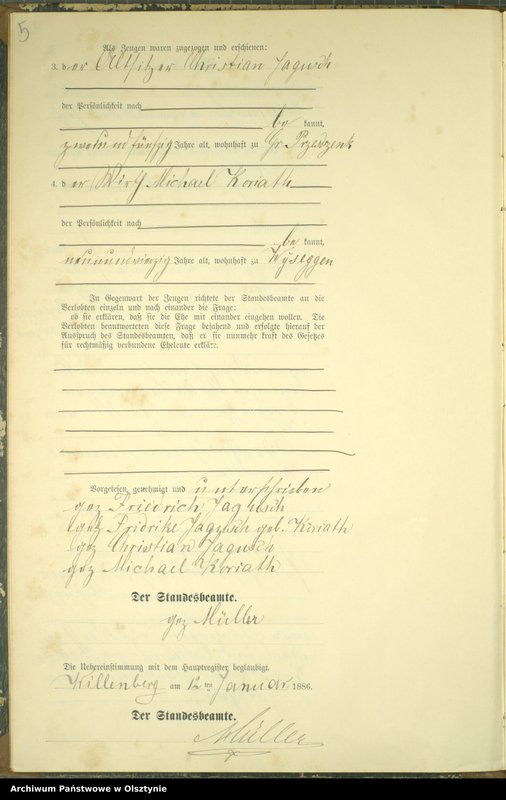 5
Als Zeugen waren zugezogen und erschienen:
3. der Altsitzer Christian Jagusch
der Persönlichkeit nach
be kannt,
zweiundfünfzig Jahre alt, wohnhaft zu Gr. Przesdzenk
4. der Wirth Michael Koriath
der Persönlichkeit nach
be kannt,
neunundvierzig Jahre alt, wohnhaft zu Wyseggen
In Gegenwart der Zeugen richtete der Standesbeamte an die
Verlobten einzeln und nach einander die Frage:
ob sie erklären, daß sie die Ehe mit einander eingehen wollen. Die
Verlobten beantworteten diese Frage bejahend und erfolgte hierauf der
Ausspruch des Standesbeamten, daß er sie nunmehr kraft des Gesetzes
für rechtmäßig verbundene Eheleute erkläre.
Vorgelesen, genehmigt und unterschrieben
gez Friedrich Jagusch
gez Fridrike Jagusch geb. Koriath
gez Christian Jagusch
gez Michael Koriath
Der Standesbeamte.
gez Müller
Die Uebereinstimmung mit dem Hauptregister beglaubigt.
Willenberg am 12 ten Januar 1886.
Der Standesbeamte.
Müller
Archiwum Państwowe w Olsztynie